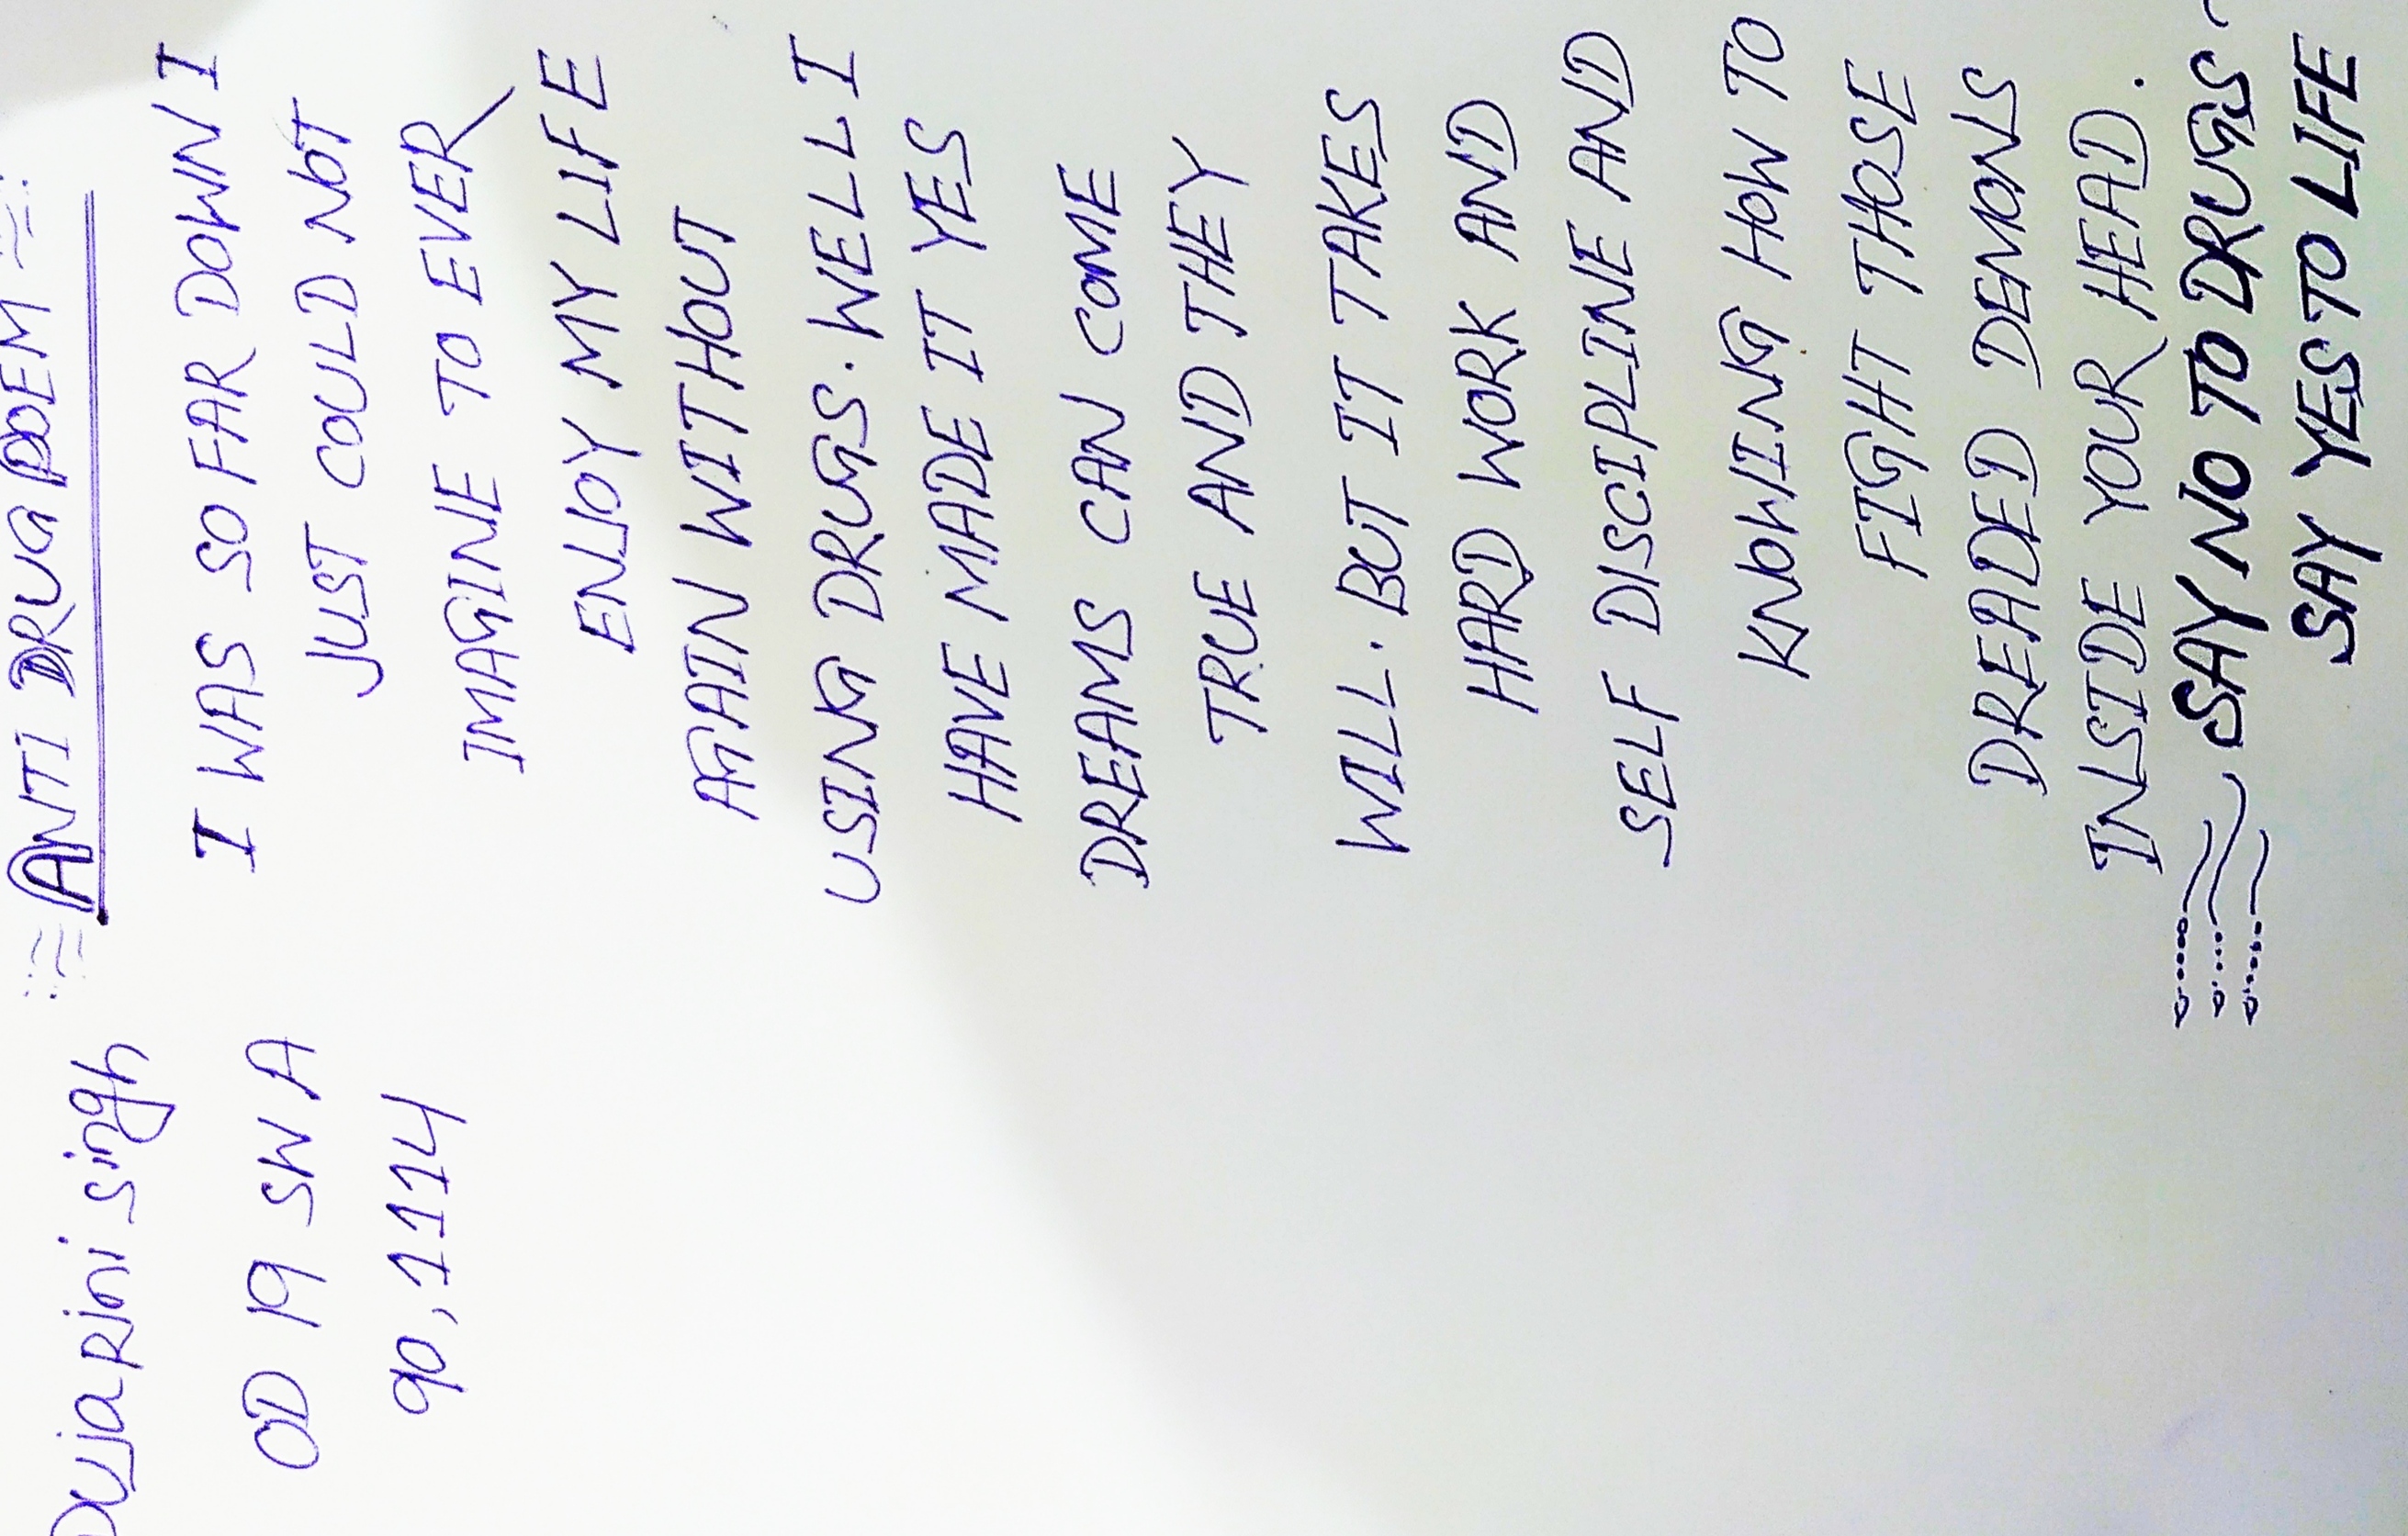 ANTI DRUG POEM
singh
OD 19 SW A
90,1114
I WAS SO FAR DOWN I
JUST COULD NOT
IMAGINE TO EVER
ENJOY MY LIFE
AGAIN WITHOUT
USING DRUGS. WELL I
HAVE MADE IT YES
DREAMS CAN COME
TRUE AND THEY
WILL. BUT IT TAKES
HARD WORK AND
SELF DISCIPLINE AND
KNOWING HOW TO
FIGHT THOSE
DREADED DEMONS
INSIDE YOUR HEAD.
SAY NO TO DRUGS
SAY YES TO LIFE